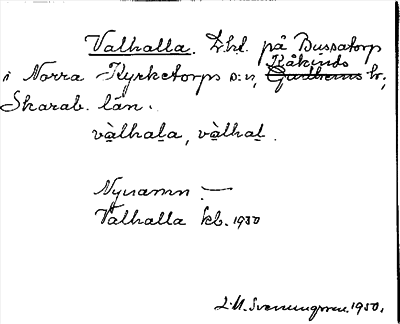 Valhalla. Lht. på Bussatorp
i Norra Kyrketorps s:n, Kåkinds hr,
Skarab. län.
vàlhala, vàlhal.
Nynamn :—
Valhalla kb. 1930
1950.